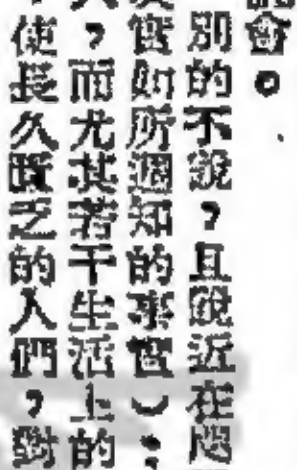 會。
別的不說,且說近在咫
實如所週知的事實);
,而尤其若干生活上的
,使長久匱乏的人們,對